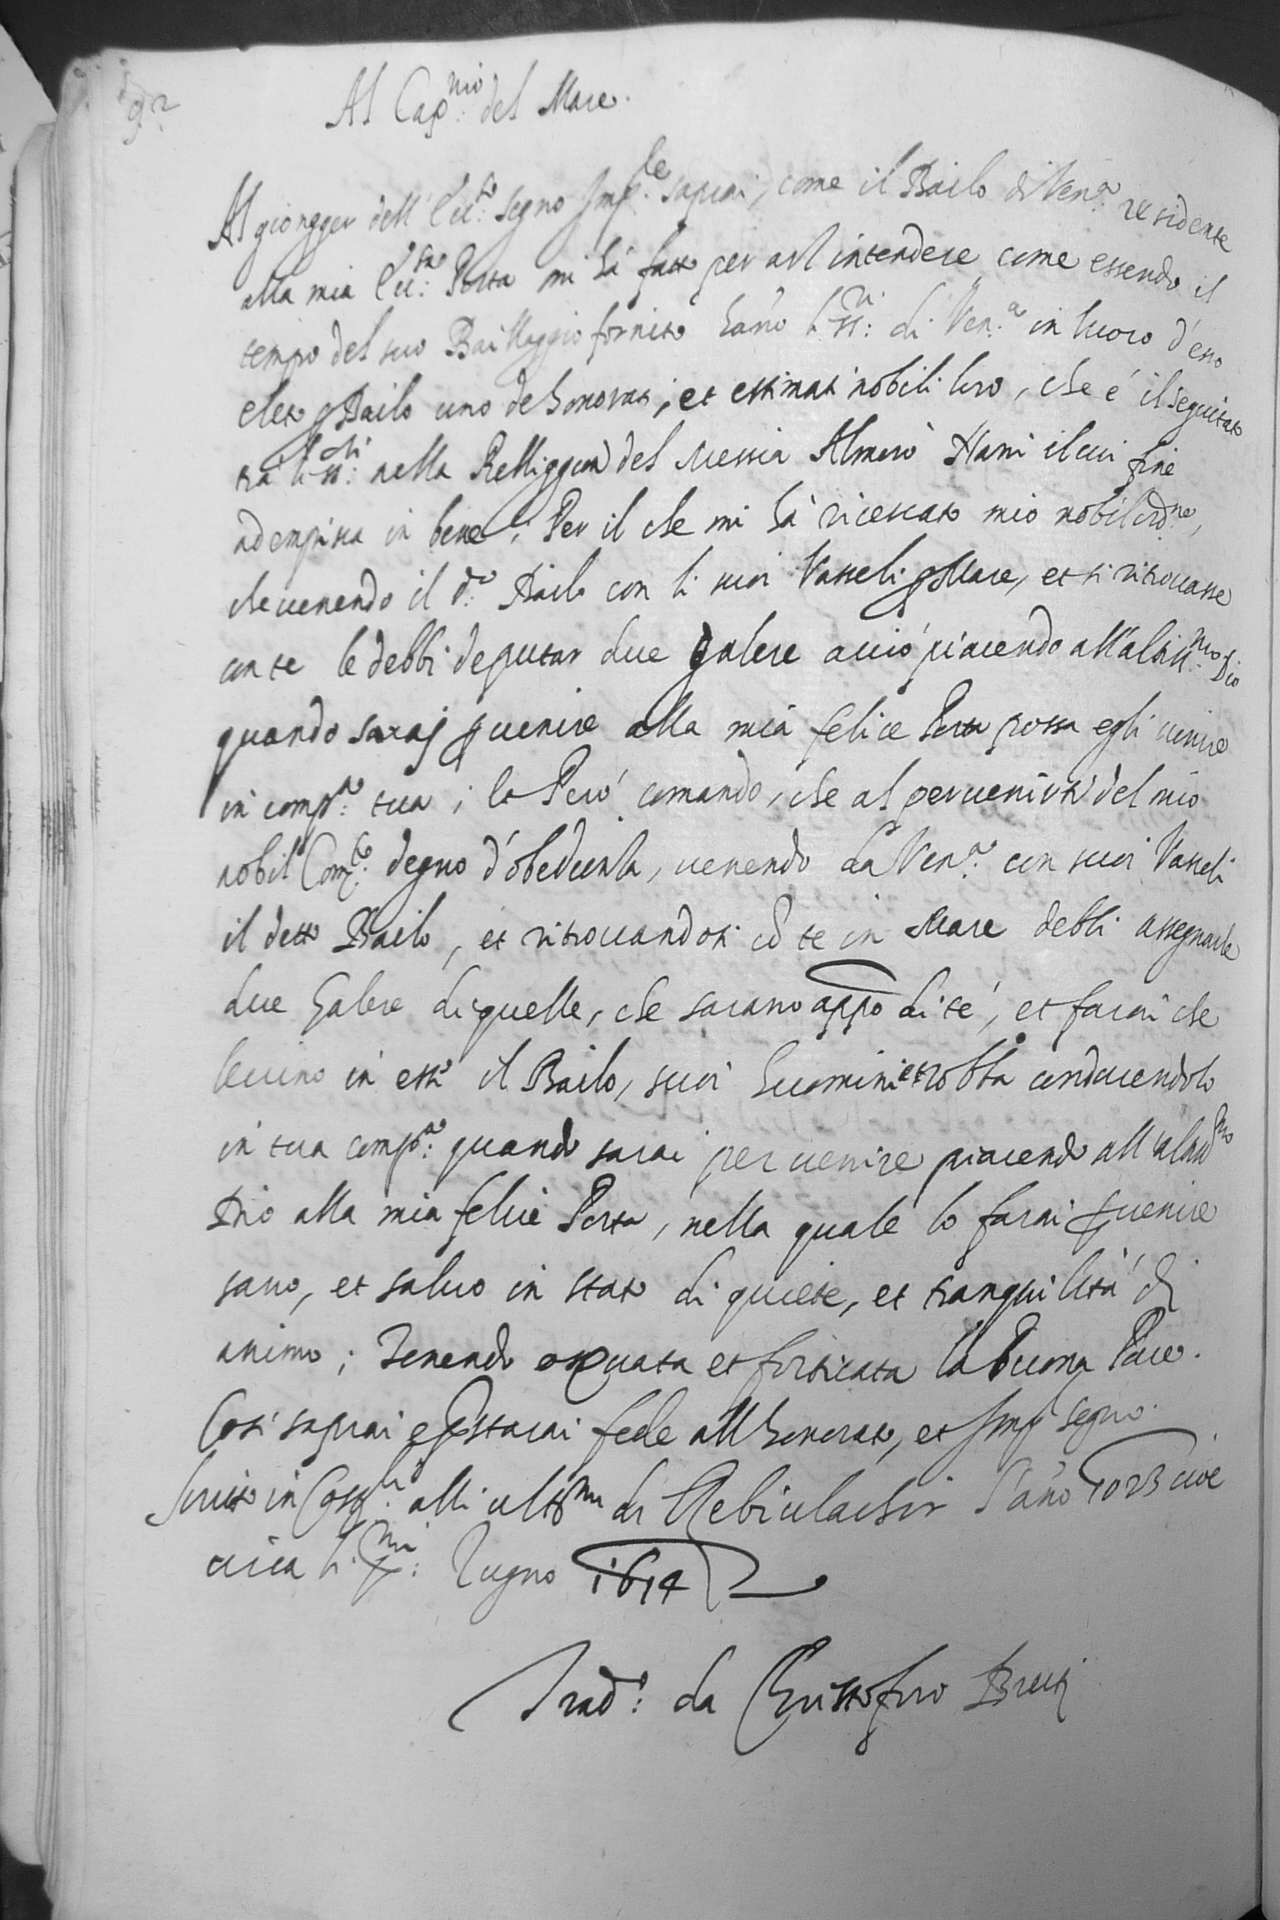 92
Al Cap.nio del Mare.
Al giongger dell' Ecc.so segno Imp.le saprai, come il Bailo di Ven.a residente
alla mia Ecc.sa Porta mi hà fatto per arz intendere come essendo il
tempo del suo Baillaggio fornito hano li SS.ri di Ven.a in luoco d'esso
eleto p Bailo uno de honorati, et estimati nobili loro, che é il seguitato
trà li SS.ri nella Religgion del Messia Almorò Nani il cui fine
adempisca in bene; Per il che mi hà ricercato mio nobil ord.ne,
che venendo il d.o Bailo con li suoi Vasseli p Mare, et si ritrovasse
con te le debbi deputar due galere acciò piacendo all'altiss.mo Dio
quando sarai p venire alla mia felice Porta possa egli venire
in comp.a tua; et Però comando, che al pervenirti del mio
nobil Com.to degno d'obedienza, venendo da Ven.a con suoi Vasseli
il detto Bailo, et ritrovandosi cō te in Mare debbi assegnarle
due Galere di quelle, che sarano appo di té, et farai che
levino in esse il Bailo, suoi huomini et robba conducendolo
in tua comp.a quando sarai per venire piacendo all'altiss.mo
Dio alla mia felice Porta, nella quale lo farai pvenire
sano, et salvo in stato di quiete, et tranquilità di
animo; Tenendo osservata et fortificata la buona Pace.
Così saprai e pstarai fede all'honorato, et Imp. segno.
Scritto in Cost.li alli ultimi di Rebiulachir l'ano 1023 cioè
circa li p.mi Zugno 1614
Trad.o da Christoforo Brutj